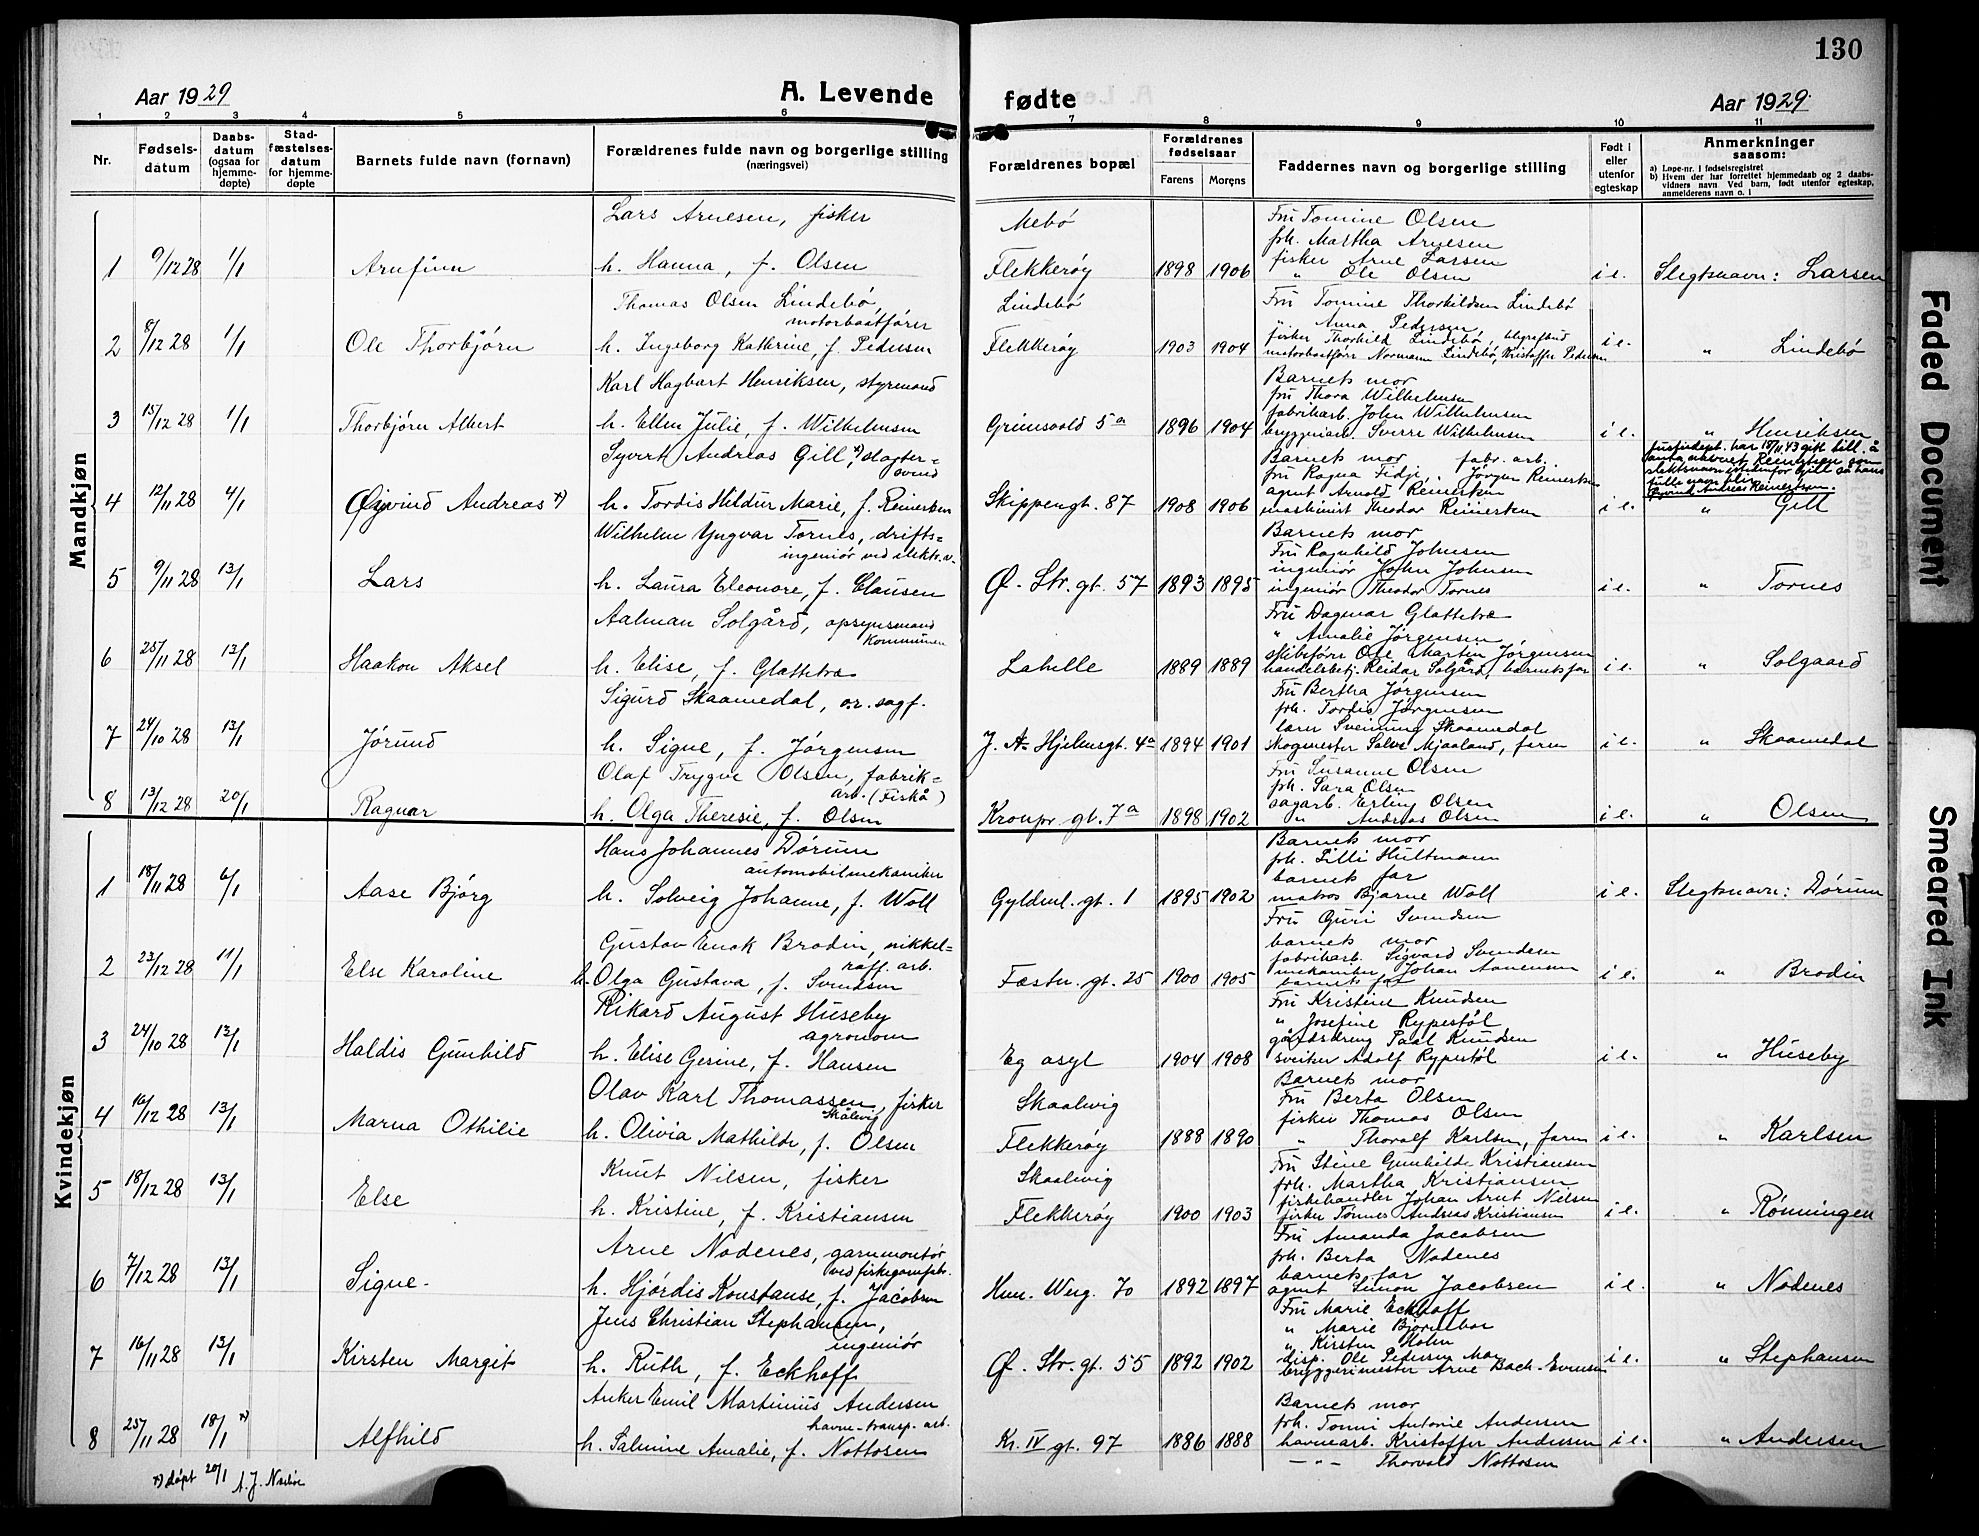 130
Aar 1929
A. Levende
fødte
Aar 1929.
1 2 3 4 5 6 7 8 9 10 11
Nr.
Fødsels-
datum
Daabs-
datum
(ogsaa for
hjemme-
døpte)
Stad-
fæstelses-
datum
for hjemme-
døpte
Barnets fulde navn (fornavn)
Forældrenes fulde navn og borgerlige stilling
(næringsvei)
Forældrenes bopæl
Forældrenes
fødselsaar
Farens Morens
Faddernes navn og borgerlige stilling
Født i
eller
utenfor
egteskap
Anmerkninger
saasom:
a) Løpe-nr. i fødselsregistret
b) Hvem der har forrettet hjemmedaab og 2 daabs-
vidners navn. Ved barn, født utenfor egteskap,
anmelderens navn o. l
Mandkjøn
1 9/12 28 1/1 Arnfinn
Lars Arnesen, fisker
h. Hanna, f. Olsen
Mebø
Flekkerøy 1898 1906
Fru Tomine Olsen
frk. Martha Arnesen
fisker Arne Larsen
" Ole Olsen
i e. Slegtsnavn: Larsen
2 8/12 28 1/1 Ole Thorbjørn
Thomas Olsen Lindebø,
motorbaatfører
h. Ingeborg Kathrine, f. Pedersen
Lindebø
Flekkerøy 1903 1904
Fru Tomine Thorkildsen Lindebø
" Anna Pedersen
fisker Thorkild Lindebø,
motorbaatfører Normann Lindebø, Kristoffer Pedersen
i e. " Lindebø
3 15/12 28 1/1 Thorbjørn Albert
Karl Hagbart Henriksen, styrmand
h. Ellen Julie, f. Wilhelmsen
Grimsvold 5a 1896 1904
Barnets mor
fru Thora Wilhelmsen
fabrikarb. John Wilhelmsen
bryggeriarb. Sverre Wilhelmsen
i e. " Henriksen
4 12/11 28 4/1 Øyvind Andreas x)
Syvert Andreas Gill, x) slagter=
svend
h. Tordis Hildur Marie, f. Reinertsen
Skippergt. 87 1908 1906
Barnets mor fabr. arb.
fru Ragna Fidje, Jørgen Reinertsen
agent Arnold Reinertsen
maskinist Theodor Reinertsen
Justisdept. har 18/11 43 gitt till. å
slektsnavn istedenfor Gill så hans
fulle navn blir
Øyvind Andreas Reinertsen.
i e. " Gill
5 9/11 28 13/1 Lars
Wilhelm Yngvar Tornes, drifts=
ingeniør ved elektr. v.
h. Laura Eleonore, f. Clausen
Ø. Str. gt. 57 1893 1895
Barnets mor
Fru Ragnhild Johnsen
ingeniør John Johnsen
ingeniør Theodor Tornes
i e. " Tornes
6 25/11 28 13/1 Haakon Aksel
Aalman Solgård, opsynsmand
Kommunen
h. Elise, f. Glattetræ
Lahelle 1889 1889
Fru Dagmar Glattetræ
" Amalie Jørgensen
skibsfører Ole Martin Jørgensen
handelsbetj. Reidar Solgård, barnets far
i e. " Solgaard
7 24/10 28 13/1 Jørund
Sigurd Skaamedal, o.r. sagf.
h. Signe, f. Jørgensen
J. A= Hjelmsgt. 4a 1894 1901
Fru Bertha Jørgensen
frk. Tordis Jørgensen
lærer Sveinung Skaamedal
skogmester Salve Mjaaland, faren
i e. " Skaamedal
8 13/12 28 20/1 Ragnar
Olaf Trygve Olsen, fabrik=
arb. (Fiskå)
h. Olga Theresie, f. Olsen
Kronpr. gt. 7a 1898 1902
Fru Susanne Olsen
frk. Sara Olsen
sagarb. Erling Olsen
" Andreas Olsen
i e. " Olsen
Kvindekjøn
1 18/11 28 6/1 Aase Bjørg
Hans Johannes Dørum
automobilmekaniker
h. Solveig Johanne, f. Woll
Gyldenl. gt. 1 1895 1902
Barnets mor
frk. Lilli Hultmann
barnets far
matros Bjarne Woll
i e. Slegtsnavn: Dørum
2 23/12 28 11/1 Else Karoline
Gustav Enok Brodin, nikkel=
raff. arb.
h. Olga Gustava, f. Svendsen
Fæstn. gt. 25 1900 1905
Fru Guri Svendsen
barnets mor
fabrikarb. Sigvard Svendsen
mekaniker Johan Aanensen
barnets far
i e. " Brodin
3 24/10 28 13/1 Haldis Gunhild
Rikard August Huseby
agronom
h. Elise Gerine, f. Hansen
Eg asyl 1904 1908
Fru Kristine Knudsen
" Josefine Rypestøl
gårdsdreng Paal Knudsen
sveiser Adolf Rypestøl
i e. " Huseby
4 16/12 28 13/1 Marna Othilie
Olav Karl Thomassen, fisker
Skålevig
h. Olivia Mathilde, f. Olsen
Skaalevig
Flekkerøy 1888 1890
Barnets mor
Fru Berta Olsen
fisker Thomas Olsen
" Thoralf Karlsen, faren
i e. " Karlsen
5 18/12 28 13/1 Else
Knut Nilsen, fisker
h. Kristine, f. Kristiansen
Skaalevig
Flekkerøy 1900 1903
Fru Stine Gunhilde Kristiansen
frk. Martha Kristiansen
fiskehandler Johan Arnt Nilsen
fisker Tønnes Andreas Kristiansen
i e. " Rønningen
6 7/12 28 13/1 Signe.
Arne Nodenes, garnmontør
ved fiskegarnfabr.
h. Hjørdis Konstanse, f. Jacobsen
Hen. Werg. 70 1892 1897
Fru Amanda Jacobsen
frk. Berta Nodenes
barnets far
agent Simon Jacobsen
i e. " Nodenes
7 16/11 28 13/1 Kirsten Margit
Jens Christian Stephansen,
ingeniør
h. Ruth, f. Eckhoff
Ø. Str. gt. 55 1892 1902
Fru Marie Eckhoff
" Marie Bjørnebo
" Kirsten Holm
disp. Ole Pedersen Moe
bryggerimester Arne Bach-Evensen
i e. " Stephansen
8 25/11 28 18/1 x) Alfhild
Anker Emil Martinius Andersen
havne-transp. arb.
h. Salmine Amalie, f. Nottosen
Kr. IV gt. 97 1886 1888
Barnets mor
frk. Tonni Antonie Andersen
havnearb. Kristoffer Andersen
— " — Thorvald Nottosen
i e. " Andersen
x) døpt 20/1 A. J. Næsbøe
Faded Document
Smeared Ink